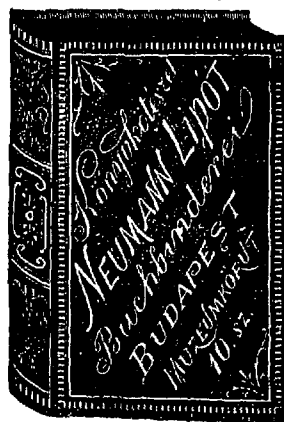 Könyvkötészet
NEUMANN LIPÓT
Buchbinderei
BUDAPEST
MUZEUMKÖRÚT
10. sz.